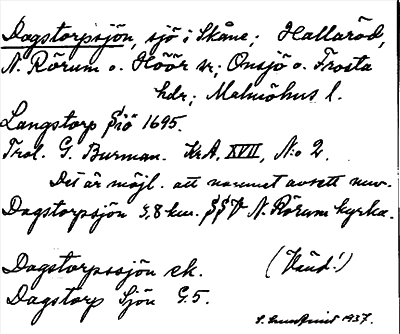 Dagstorpssjön, sjö i Skåne; Hallaröd,
N. Rörum o. Höör sn; Onsjö o. Frosta
hdr; Malmöhus l.
Langstorp Siö 1695.
Trol. G. Burman. KrA, XVII, No 2.
Det är möjl. att namnet avsett nuv.
Dagstorpssjön 5,8 km. SSV N. Rörums kyrka.
Dagstorpssjön ek. (Vänd!)
Dagstorp Sjön G.5.
1937.